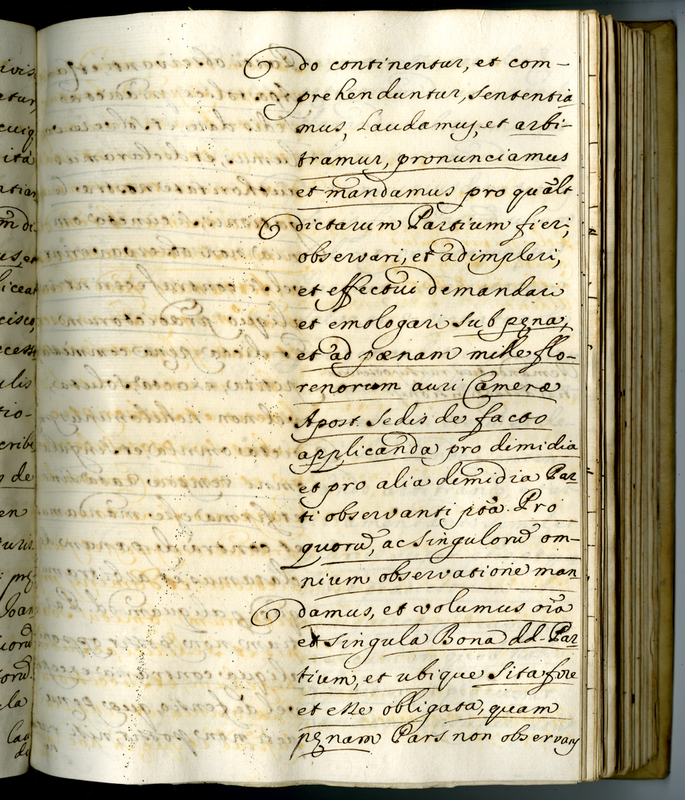 ivis
etur,
cuiq
ita
ntiam
m di
us, et
liceat
cisco,
ecess
ulis
tio-
cribi
s de
en
turis
Joan
iord
tord.
la
do continentur, et com-
prehenduntur, sententia
mus, Laudamus, et arbi-
tramur, pronunciamus
et mandamus pro qualt.
dictarum Partium fieri,
observari, et adimpleri,
et effectui demandari
et emologari sub pęna,
et ad pœnam mille flo-
renorum auri Cameræ
Apost. Sedis de facto
applicanda pro dimidia
et pro alia demidia Par
ti observanti ptã. Pro
quorũ, ac singulorũ om-
nium observatione man
damus, et volumus oĩa
et singula Bona dd. Par
tium, et ubique sita fore
et esse obligata, quam
pęnam Pars non observans